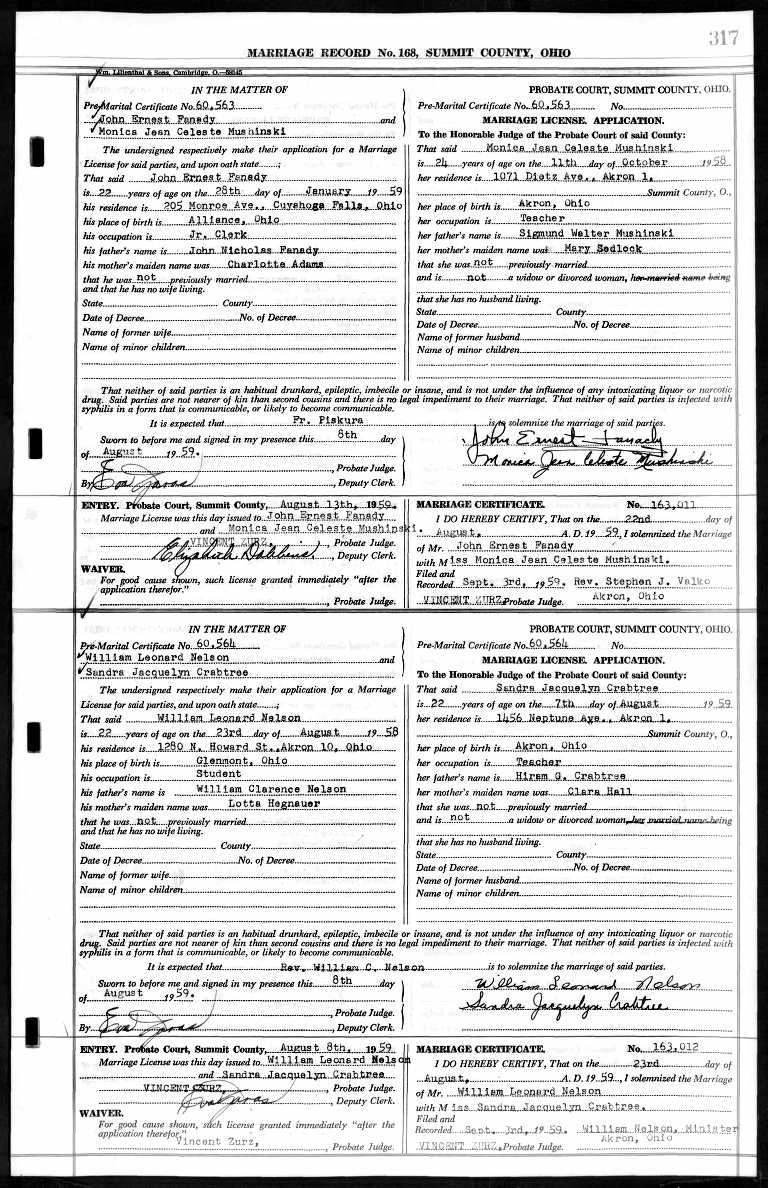 317
MARRIAGE RECORD No. 168, SUMMIT COUNTY, OHIO
Wm. Lilienthal & Sons, Cambridge, O.—58545
IN THE MATTER OF
Pre-Marital Certificate No. 60,563
John Ernest Fanady and
Monica Jean Celeste Mushinski
The undersigned respectively make their application for a Marriage
License for said parties, and upon oath state ;
That said John Ernest Fanady
is 22 years of age on the 28th day of January 19 59
his residence is 205 Monroe Ave., Cuyahoga Falls, Ohio
his place of birth is Alliance, Ohio
his occupation is Jr. Clerk
his father's name is John Nicholas Fanady
his mother's maiden name was Charlotte Adams
that he was not previously married
and that he has no wife living.
State County
Date of Decree No. of Decree
Name of former wife
Name of minor children
PROBATE COURT, SUMMIT COUNTY, OHIO.
Pre-Marital Certificate No. 60,563 No.
MARRIAGE LICENSE. APPLICATION.
To the Honorable Judge of the Probate Court of said County:
That said Monica Jean Celeste Mushinski
is 24 years of age on the 11th day of October 19 58
her residence is 1071 Dietz Ave., Akron 1,
Summit County, O.,
her place of birth is Akron, Ohio
her occupation is Teacher
her father's name is Sigmund Walter Mushinski
her mother's maiden name was Mary Sedlock
that she was not previously married
and is not a widow or divorced woman, her married name being
that she has no husband living.
State County
Date of Decree No. of Decree
Name of former husband
Name of minor children
That neither of said parties is an habitual drunkard, epileptic, imbecile or insane, and is not under the influence of any intoxicating liquor or narcotic
drug. Said parties are not nearer of kin than second cousins and there is no legal impediment to their marriage. That neither of said parties is infected with
syphilis in a form that is communicable, or likely to become communicable.
It is expected that Fr. Piskura is to solemnize the marriage of said parties.
Sworn to before me and signed in my presence this 8th day
of August 19 59.
, Probate Judge.
By , Deputy Clerk.
John Ernest Fanady
Monica Jean Celeste Mushinski
ENTRY. Probate Court, Summit County, August 13th, 19 59.
Marriage License was this day issued to John Ernest Fanady
and Monica Jean Celeste Mushinski.
VINCENT ZURZ, , Probate Judge.
Elizabeth Dobbins , Deputy Clerk.
WAIVER.
For good cause shown, such license granted immediately "after the
application therefor."
, Probate Judge.
MARRIAGE CERTIFICATE. No. 163,011
I DO HEREBY CERTIFY, That on the 22nd day of
August, A. D. 19 59, I solemnized the Marriage
of Mr. John Ernest Fanady
with Miss Monica Jean Celeste Mushinski.
Filed and
Recorded Sept. 3rd, 19 59. Rev. Stephen J. Valko
VINCENT ZURZ, Probate Judge. Akron, Ohio
IN THE MATTER OF
Pre-Marital Certificate No. 60,564
William Leonard Nelson and
Sandra Jacquelyn Crabtree
The undersigned respectively make their application for a Marriage
License for said parties, and upon oath state ;
That said William Leonard Nelson
is 22 years of age on the 23rd day of August 19 58
his residence is 1280 N. Howard St., Akron 10, Ohio
his place of birth is Glenmont, Ohio
his occupation is Student
his father's name is William Clarence Nelson
his mother's maiden name was Lotta Hegnauer
that he was not previously married
and that he has no wife living.
State County
Date of Decree No. of Decree
Name of former wife
Name of minor children
PROBATE COURT, SUMMIT COUNTY, OHIO.
Pre-Marital Certificate No. 60,564 No.
MARRIAGE LICENSE. APPLICATION.
To the Honorable Judge of the Probate Court of said County:
That said Sandra Jacquelyn Crabtree
is 22 years of age on the 7th day of August 19 59
her residence is 1456 Neptune Ave., Akron 1,
Summit County, O.,
her place of birth is Akron, Ohio
her occupation is Teacher
her father's name is Hiram G. Crabtree
her mother's maiden name was Clara Hall
that she was not previously married
and is not a widow or divorced woman, her married name being
that she has no husband living.
State County
Date of Decree No. of Decree
Name of former husband
Name of minor children
That neither of said parties is an habitual drunkard, epileptic, imbecile or insane, and is not under the influence of any intoxicating liquor or narcotic
drug. Said parties are not nearer of kin than second cousins and there is no legal impediment to their marriage. That neither of said parties is infected with
syphilis in a form that is communicable, or likely to become communicable.
It is expected that Rev. William C. Nelson is to solemnize the marriage of said parties.
Sworn to before me and signed in my presence this 8th day
of August 19 59.
, Probate Judge.
By , Deputy Clerk.
William Leonard Nelson
Sandra Jacquelyn Crabtree
ENTRY. Probate Court, Summit County, August 8th, 19 59
Marriage License was this day issued to William Leonard Nelson
and Sandra Jacquelyn Crabtree
VINCENT ZURZ, , Probate Judge.
, Deputy Clerk.
WAIVER.
For good cause shown, such license granted immediately "after the
application therefor."
Vincent Zurz, , Probate Judge.
MARRIAGE CERTIFICATE. No. 163,012
I DO HEREBY CERTIFY, That on the 23rd day of
August, A. D. 19 59, I solemnized the Marriage
of Mr. William Leonard Nelson
with Miss Sandra Jacquelyn Crabtree.
Filed and
Recorded Sept. 3rd, 19 59. William Nelson, Minister
VINCENT ZURZ, Probate Judge. Akron, Ohio